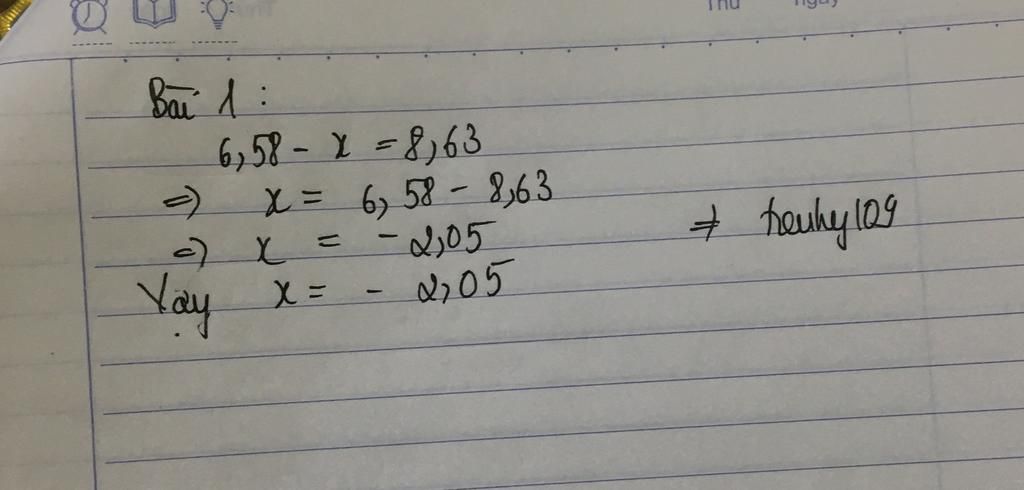 Thứ ngày
Bài 1 :
6,58 - x = 8,63
=> x = 6,58 - 8,63
=> x = - 2,05
Vậy x = - 2,05